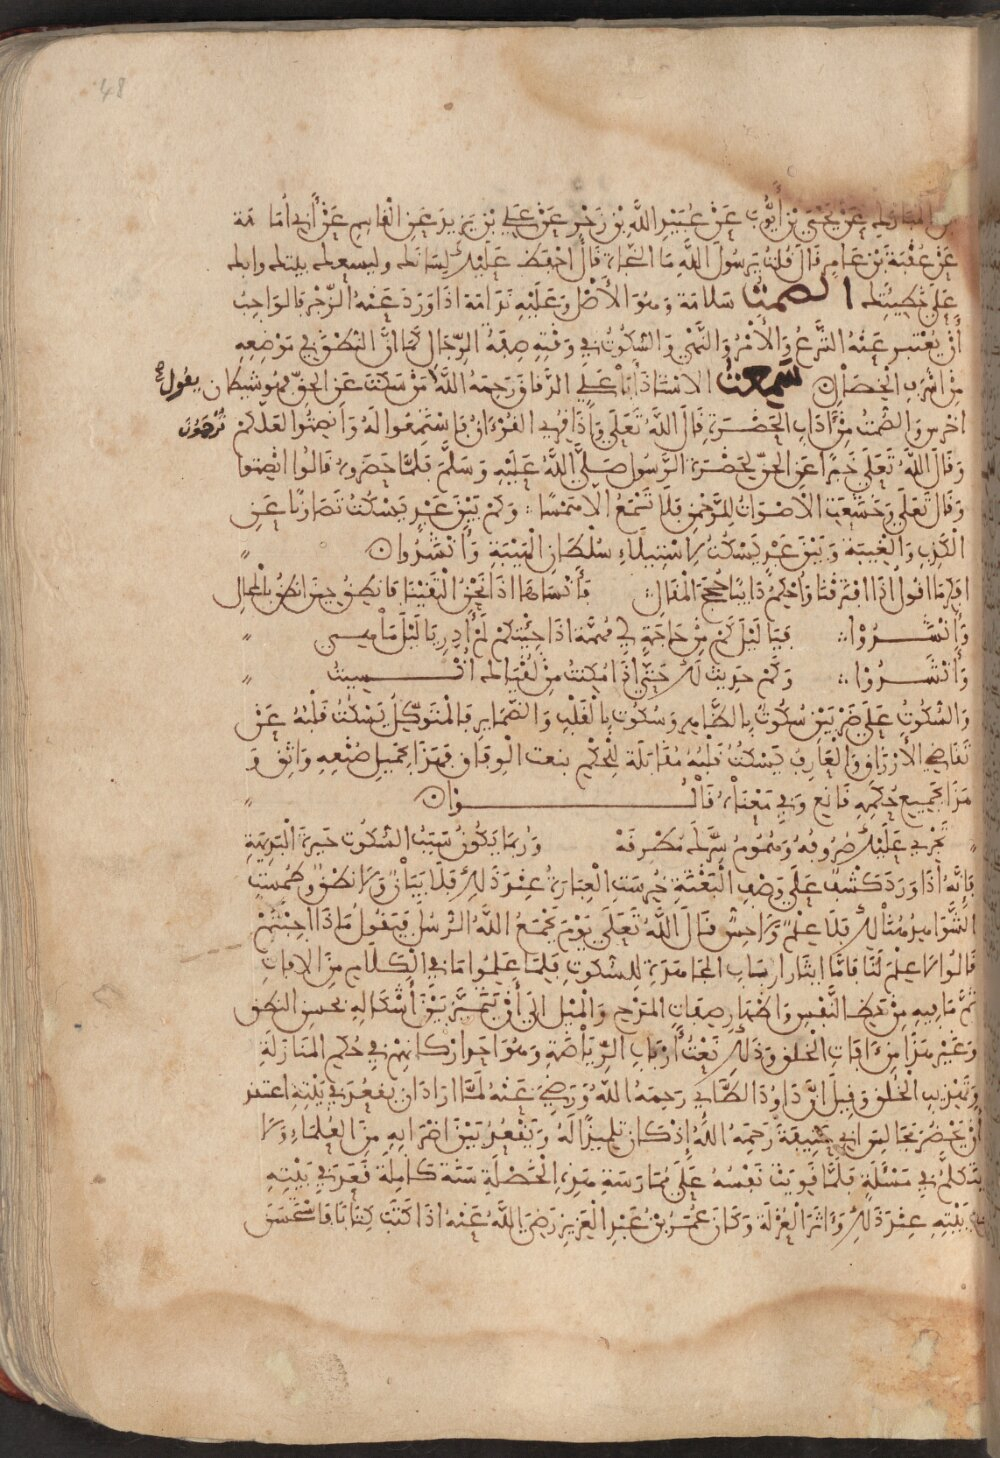 48
بن المبارك عن يحيى بن أيوب عن عبيد الله بن زحر عن علي بن يزيد عن القاسم عن أبي أمامة
عن عقبة بن عامر قال قلت يرسول الله ما النجاة قال احفظ عليك لسانك وليسعك بيتك وابك
على خطيئتك الصمت سلامة وهو الأصل وعليه ندامة اذا ورد عنه الزجر فالواجب
أن يعتبر عنه الشرع والأمر والنهي والسكوت في وقته صفة الرجال كما ان النطق في موضعه
من اشرف الخصال سمعت الاستاذ أبا علي الدقاق رحمه الله يقول من سكت عن الحق فهو شيطان
اخرس والصمت من ءاداب الحضرة قال الله تعلى وإذا قرئ القرءان فاستمعوا له وأنصتوا لعلكم ترحمون
وقال الله تعلى خبرا عن الجن بحضرة الرسول صلى الله عليه وسلم فلما حضروه قالوا انصتوا
وقال تعلى وخشعت الأصوات للرحمن فلا تسمع الا همسا وكم بين عبد يسكت تصاونا عن
الكذب والغيبة وبين عبد يسكت لاستيلاء سلطان الهيبة وأنشدوا
افكر ما اقول اذا افترقنا وأحكم دايبا حجج المقال فأنساها اذا نحن التقينا فانطق حين انطق بالمحال
وأنشدوا فيا ليل كم من حاجة لي مهمة اذا جئتكم لم أدر يا ليل ما هي
وأنشدوا وكم حديث لك حتى اذا مكنت من لقياك أنسيت
والسكوت على ضربين سكوت بالظاهر وسكوت بالقلب والضماير فالمتوكل يسكت قلبه عن
تقاضي الأرزاق والعارف يسكت قلبه مقابلة للحكم بنعت الوفاق فهذا بجميل صنعه واثق و
هذا بجميع حكمه قانع وفي معناه قالوا
تجري عليك صروفه وهموم سرك مطرقة وربما يكون سبب السكوت حيرة البديهة
فإنه اذا ورد كشف على وصف البغتة خرست العبارة عند ذلك فلا بيان ولا نطق وطمست
الشواهد هنالك فلا علم ولا حس قال الله تعلى يوم يجمع الله الرسل فيقول ماذا اجبتم
قالوا لا علم لنا فاما ايثار ارباب المجاهدة للسكوت فلما علموا ما في الكلام من الافات
ثم ما فيه من حظ النفس واظهار صفات المدح والميل الى أن يتميز بين أشكاله بحسن النطق
وغير هذا من ءافات الخلق وذلك نعت أرباب الرياضة وهو احد اركانهم في حكم المنازلة
وتهذيب الخلق وقيل ان داوود الطائي رحمه الله ورضي عنه لما اراد ان يقعد في بيته اعتقد
أن يحضر مجالس ابي حنيفة رحمه الله إذ كان تلميذا له ويقعد بين اضرابه من العلماء ولا
يتكلم في مسئلة فلما قويت نفسه على ممارسة هذه الخصلة سنة كاملة قعد في بيته
بيته عند ذلك وءاثر العزلة وكان عمر بن عبد العزيز رضي الله عنه اذا كتب كتابا فاستحسن